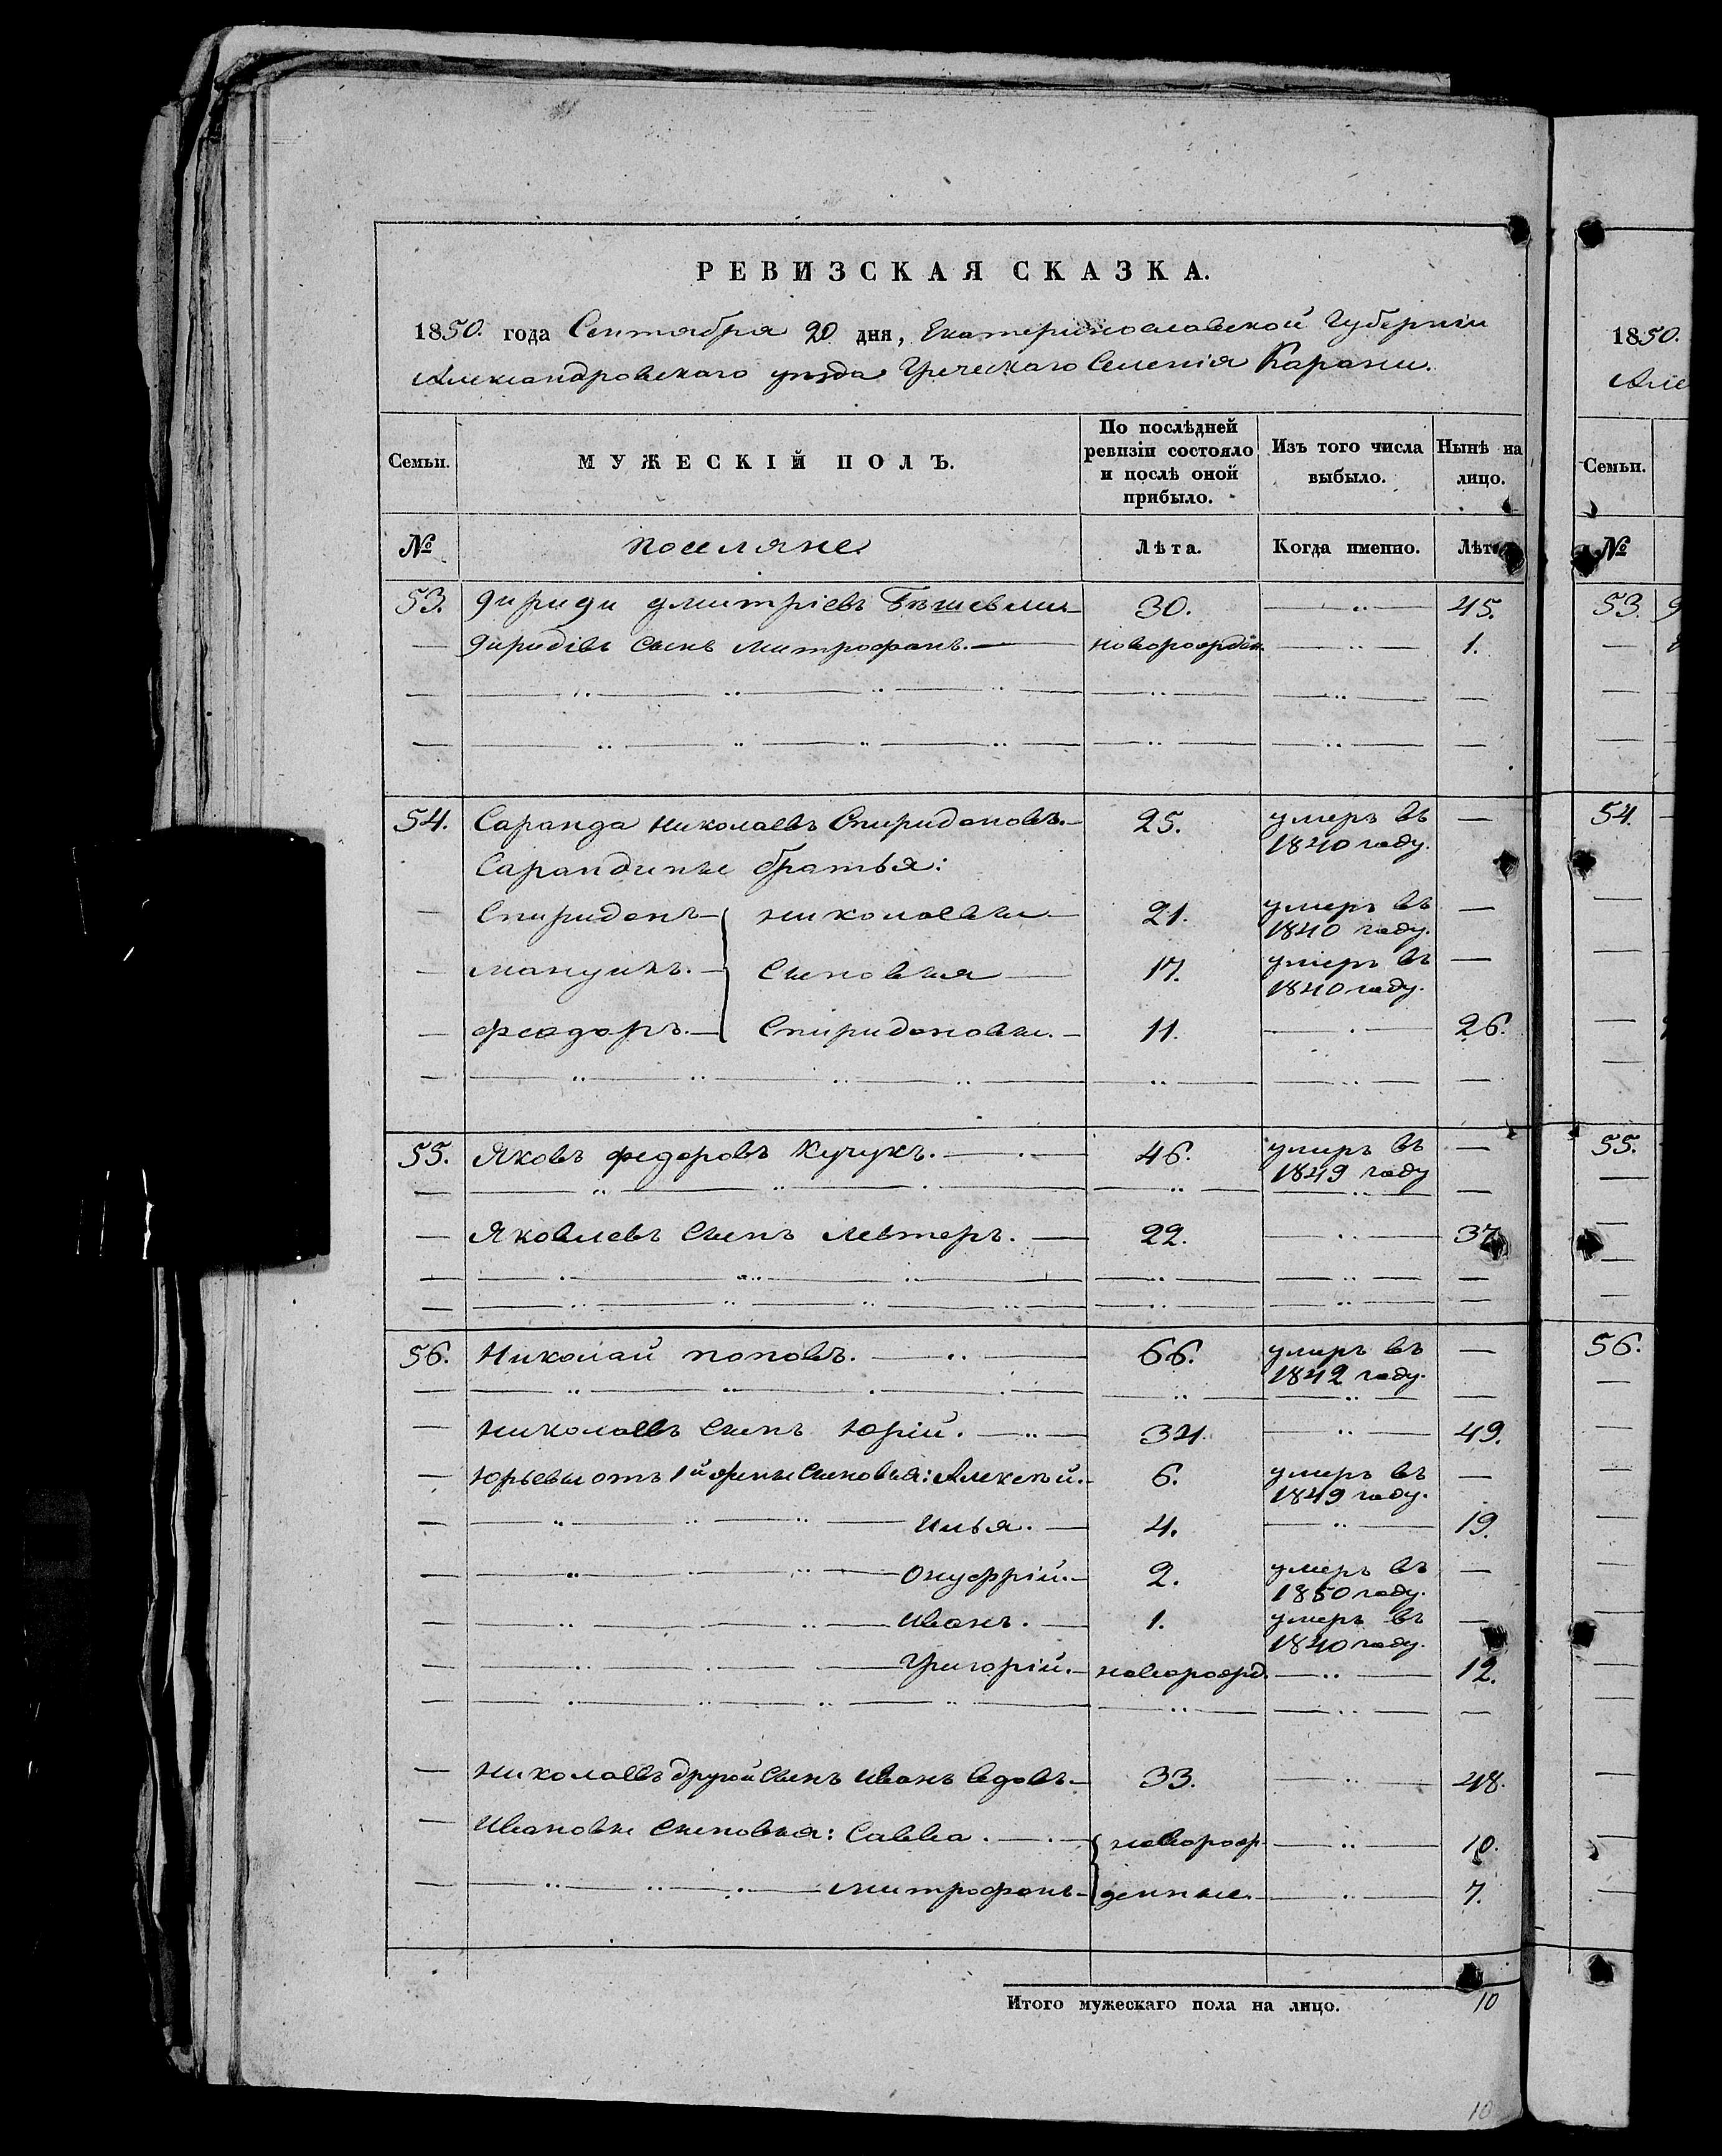 РЕВИЗСКАЯ СКАЗКА.
1850. года Сентября 20 дня, Екатеринославской Губерніи
Александровскаго уѣзда Греческаго Селенія Карани.
Семьи.
МУЖЕСКІЙ ПОЛЪ.
По послѣдней ревизіи состояло и послѣ оной прибыло.
Изъ того числа выбыло.
Нынѣ на лицо.
№ поселяне Лѣта. Когда именно. Лѣта
53. Дмитріевъ 30. 45.
сынъ Митрофанъ. новорожден. 1.
54. Саранда Николаевъ Спиридоновъ. 25. умеръ въ 1840 году.
Сарандины братья:
Спиридонъ Николаевы 21. умеръ въ 1840 году.
Мануилъ. Сыновья 17. умеръ въ 1840 году.
Феодоръ. Спиридоновы. 11. 26.
55. Яковъ Федоровъ Кучукъ. 46. умеръ въ 1849 году
Яковлевъ сынъ Левтеръ. 22. 37
56. Николай Поповъ. 66. умеръ въ 1842 году.
Николаевъ сынъ Юрій. 34. 49.
Юрьевы отъ 1й жены сыновья: Алексѣй. 6. умеръ въ 1849 году.
Илья. 4. 19.
Онуфрій. 2. умеръ въ 1850 году.
Иванъ. 1. умеръ въ 1840 году.
Григорій. новорожд. 12.
Николаевъ другой сынъ Иванъ вдовъ 33. 48.
Ивановы сыновья: Савва. новорож 10.
Митрофанъ денные. 7.
Итого мужескаго пола на лицо. 10
10
1850.
Але
Семьи.
№
53.
54.
55.
56.